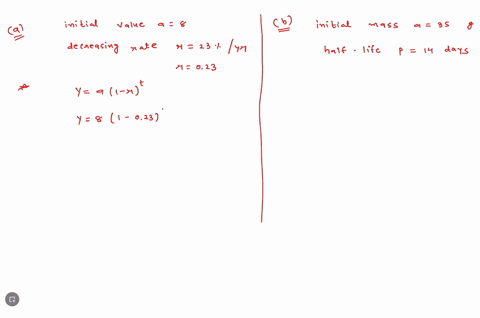 (a) initial value a = 8
decreasing rate r = 23 % / yr
r = 0.23
* y = a (1-r)^t
y = 8 (1 - 0.23)
(b) initial mass a = 35 g
half-life p = 14 days